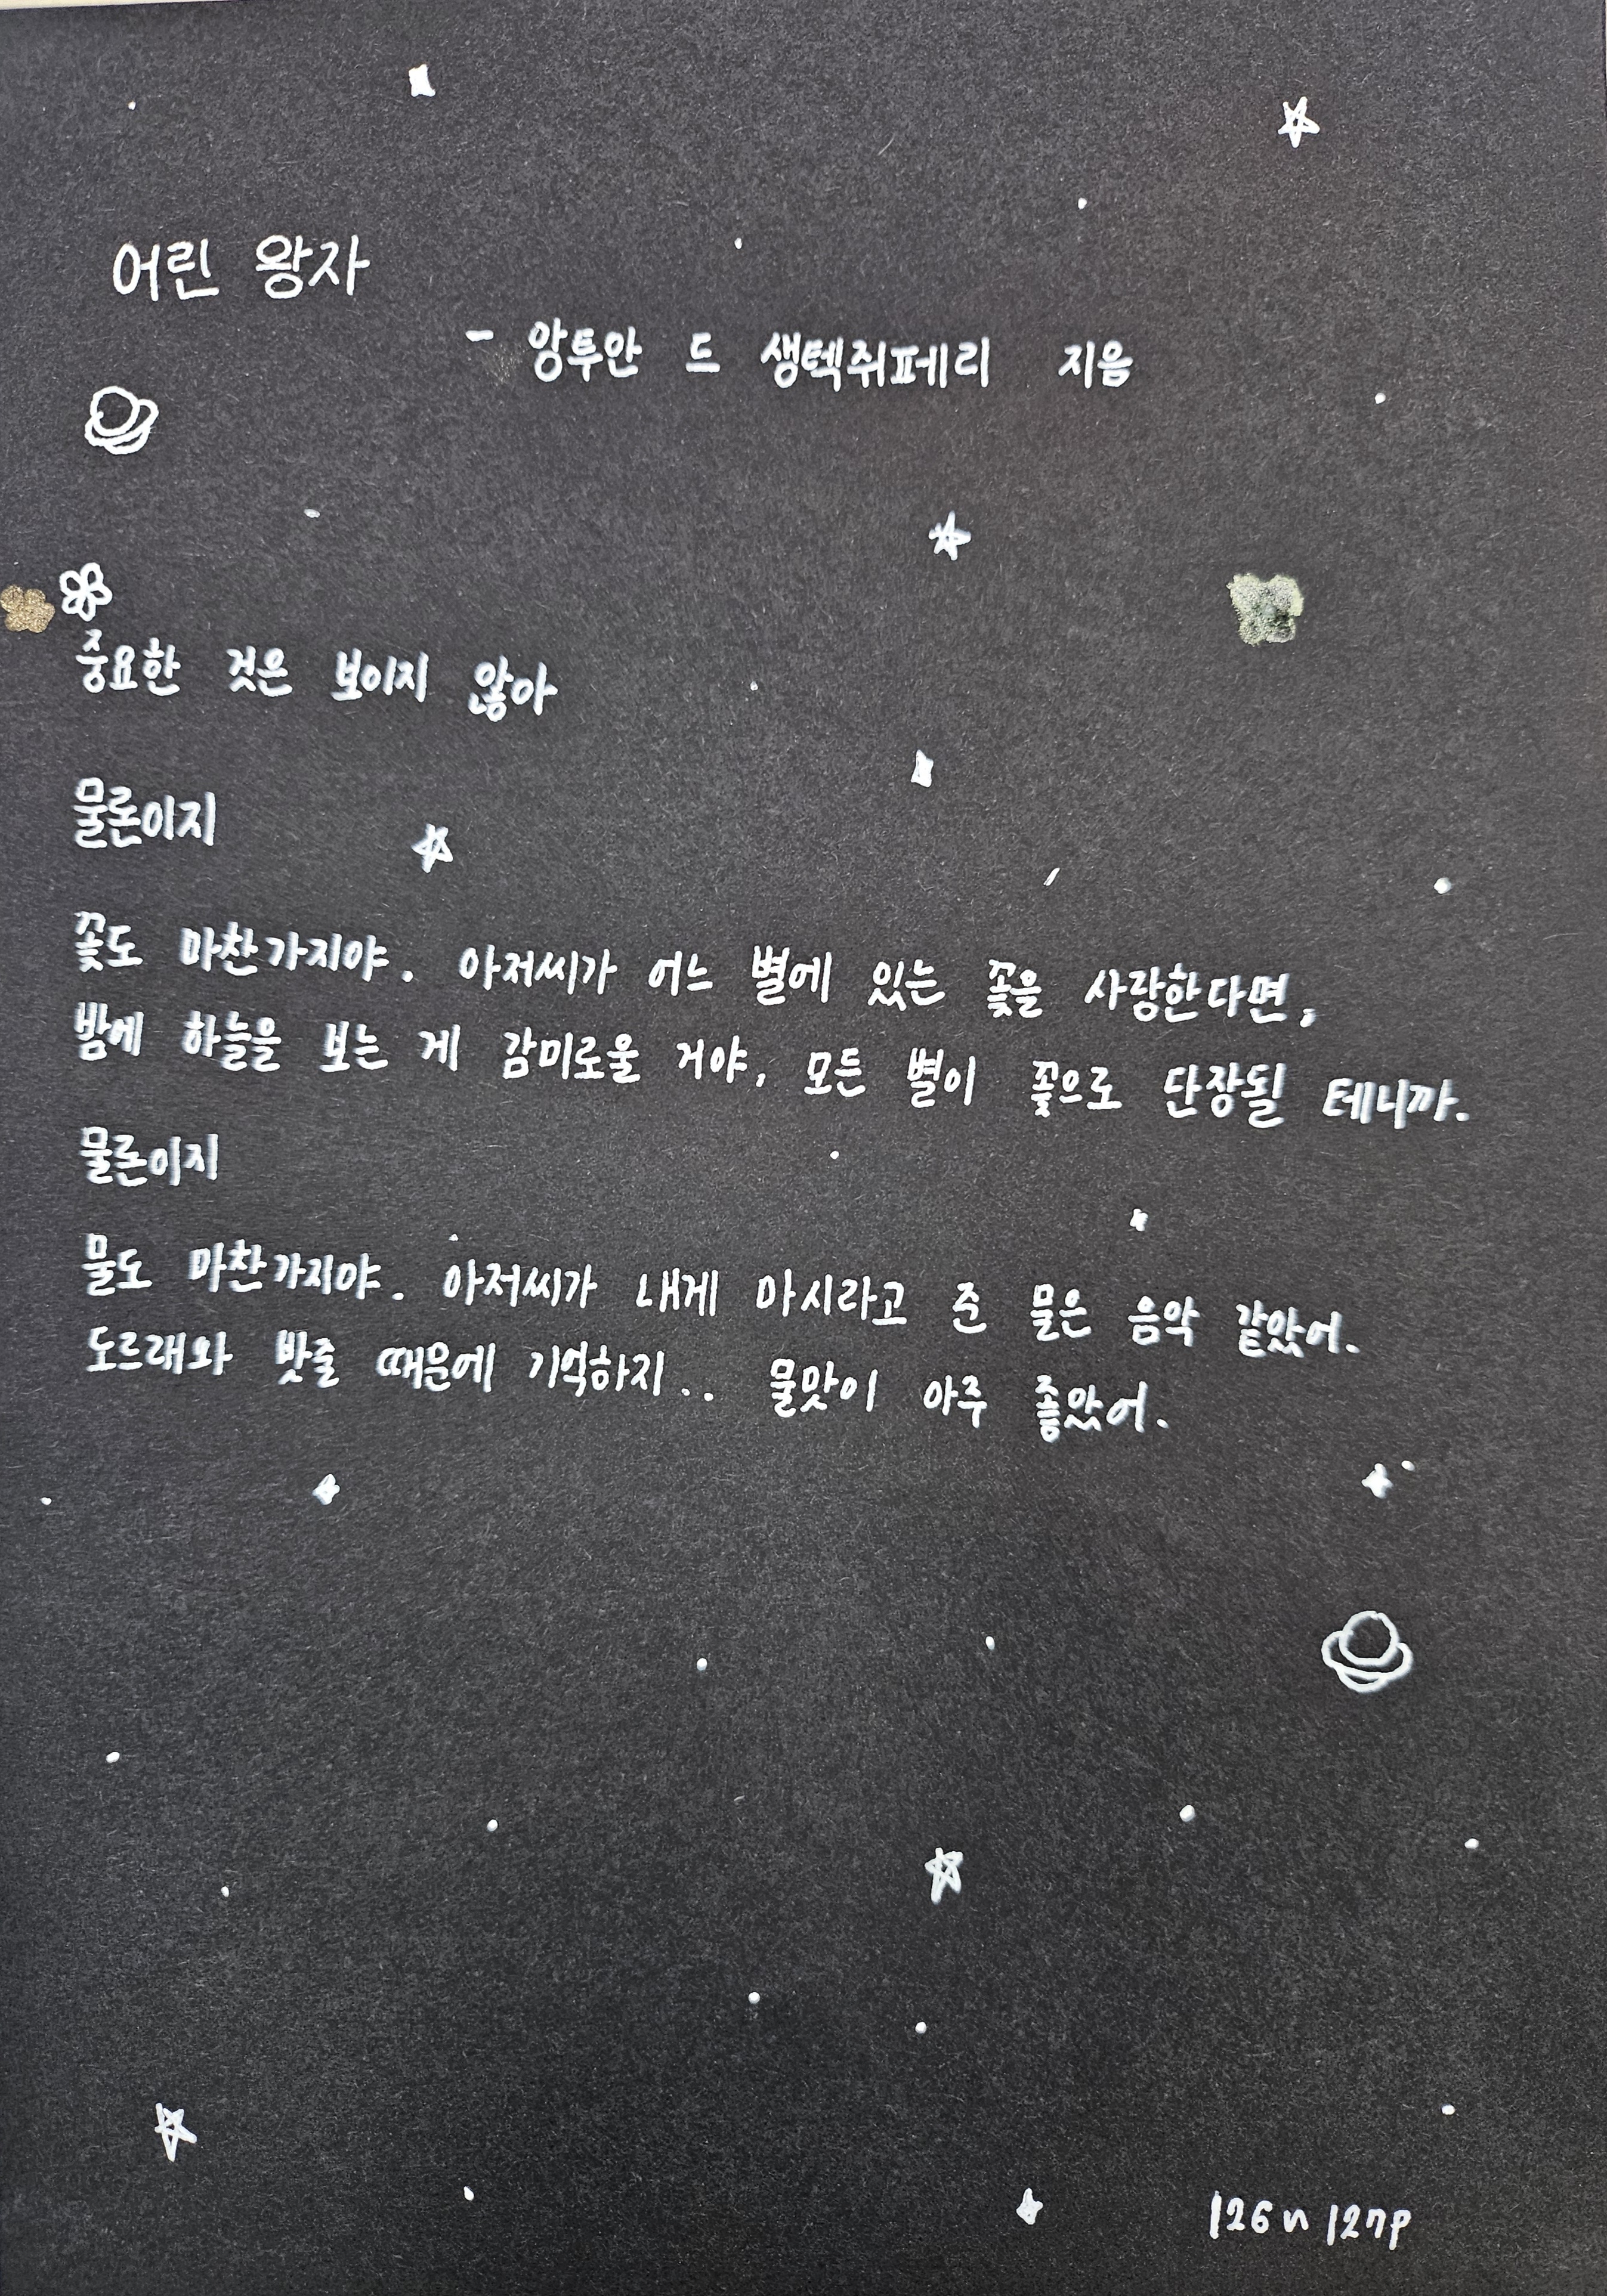 어린 왕자
- 앙투안 드 생텍쥐페리 지음
중요한 것은 보이지 않아
물론이지
꽃도 마찬가지야. 아저씨가 어느 별에 있는 꽃을 사랑한다면,
밤에 하늘을 보는 게 감미로울 거야, 모든 별이 꽃으로 단장될 테니까.
물론이지
물도 마찬가지야. 아저씨가 내게 마시라고 준 물은 음악 같았어.
도르래와 밧줄 때문에 기억하지.. 물맛이 아주 좋았어.
126~127p